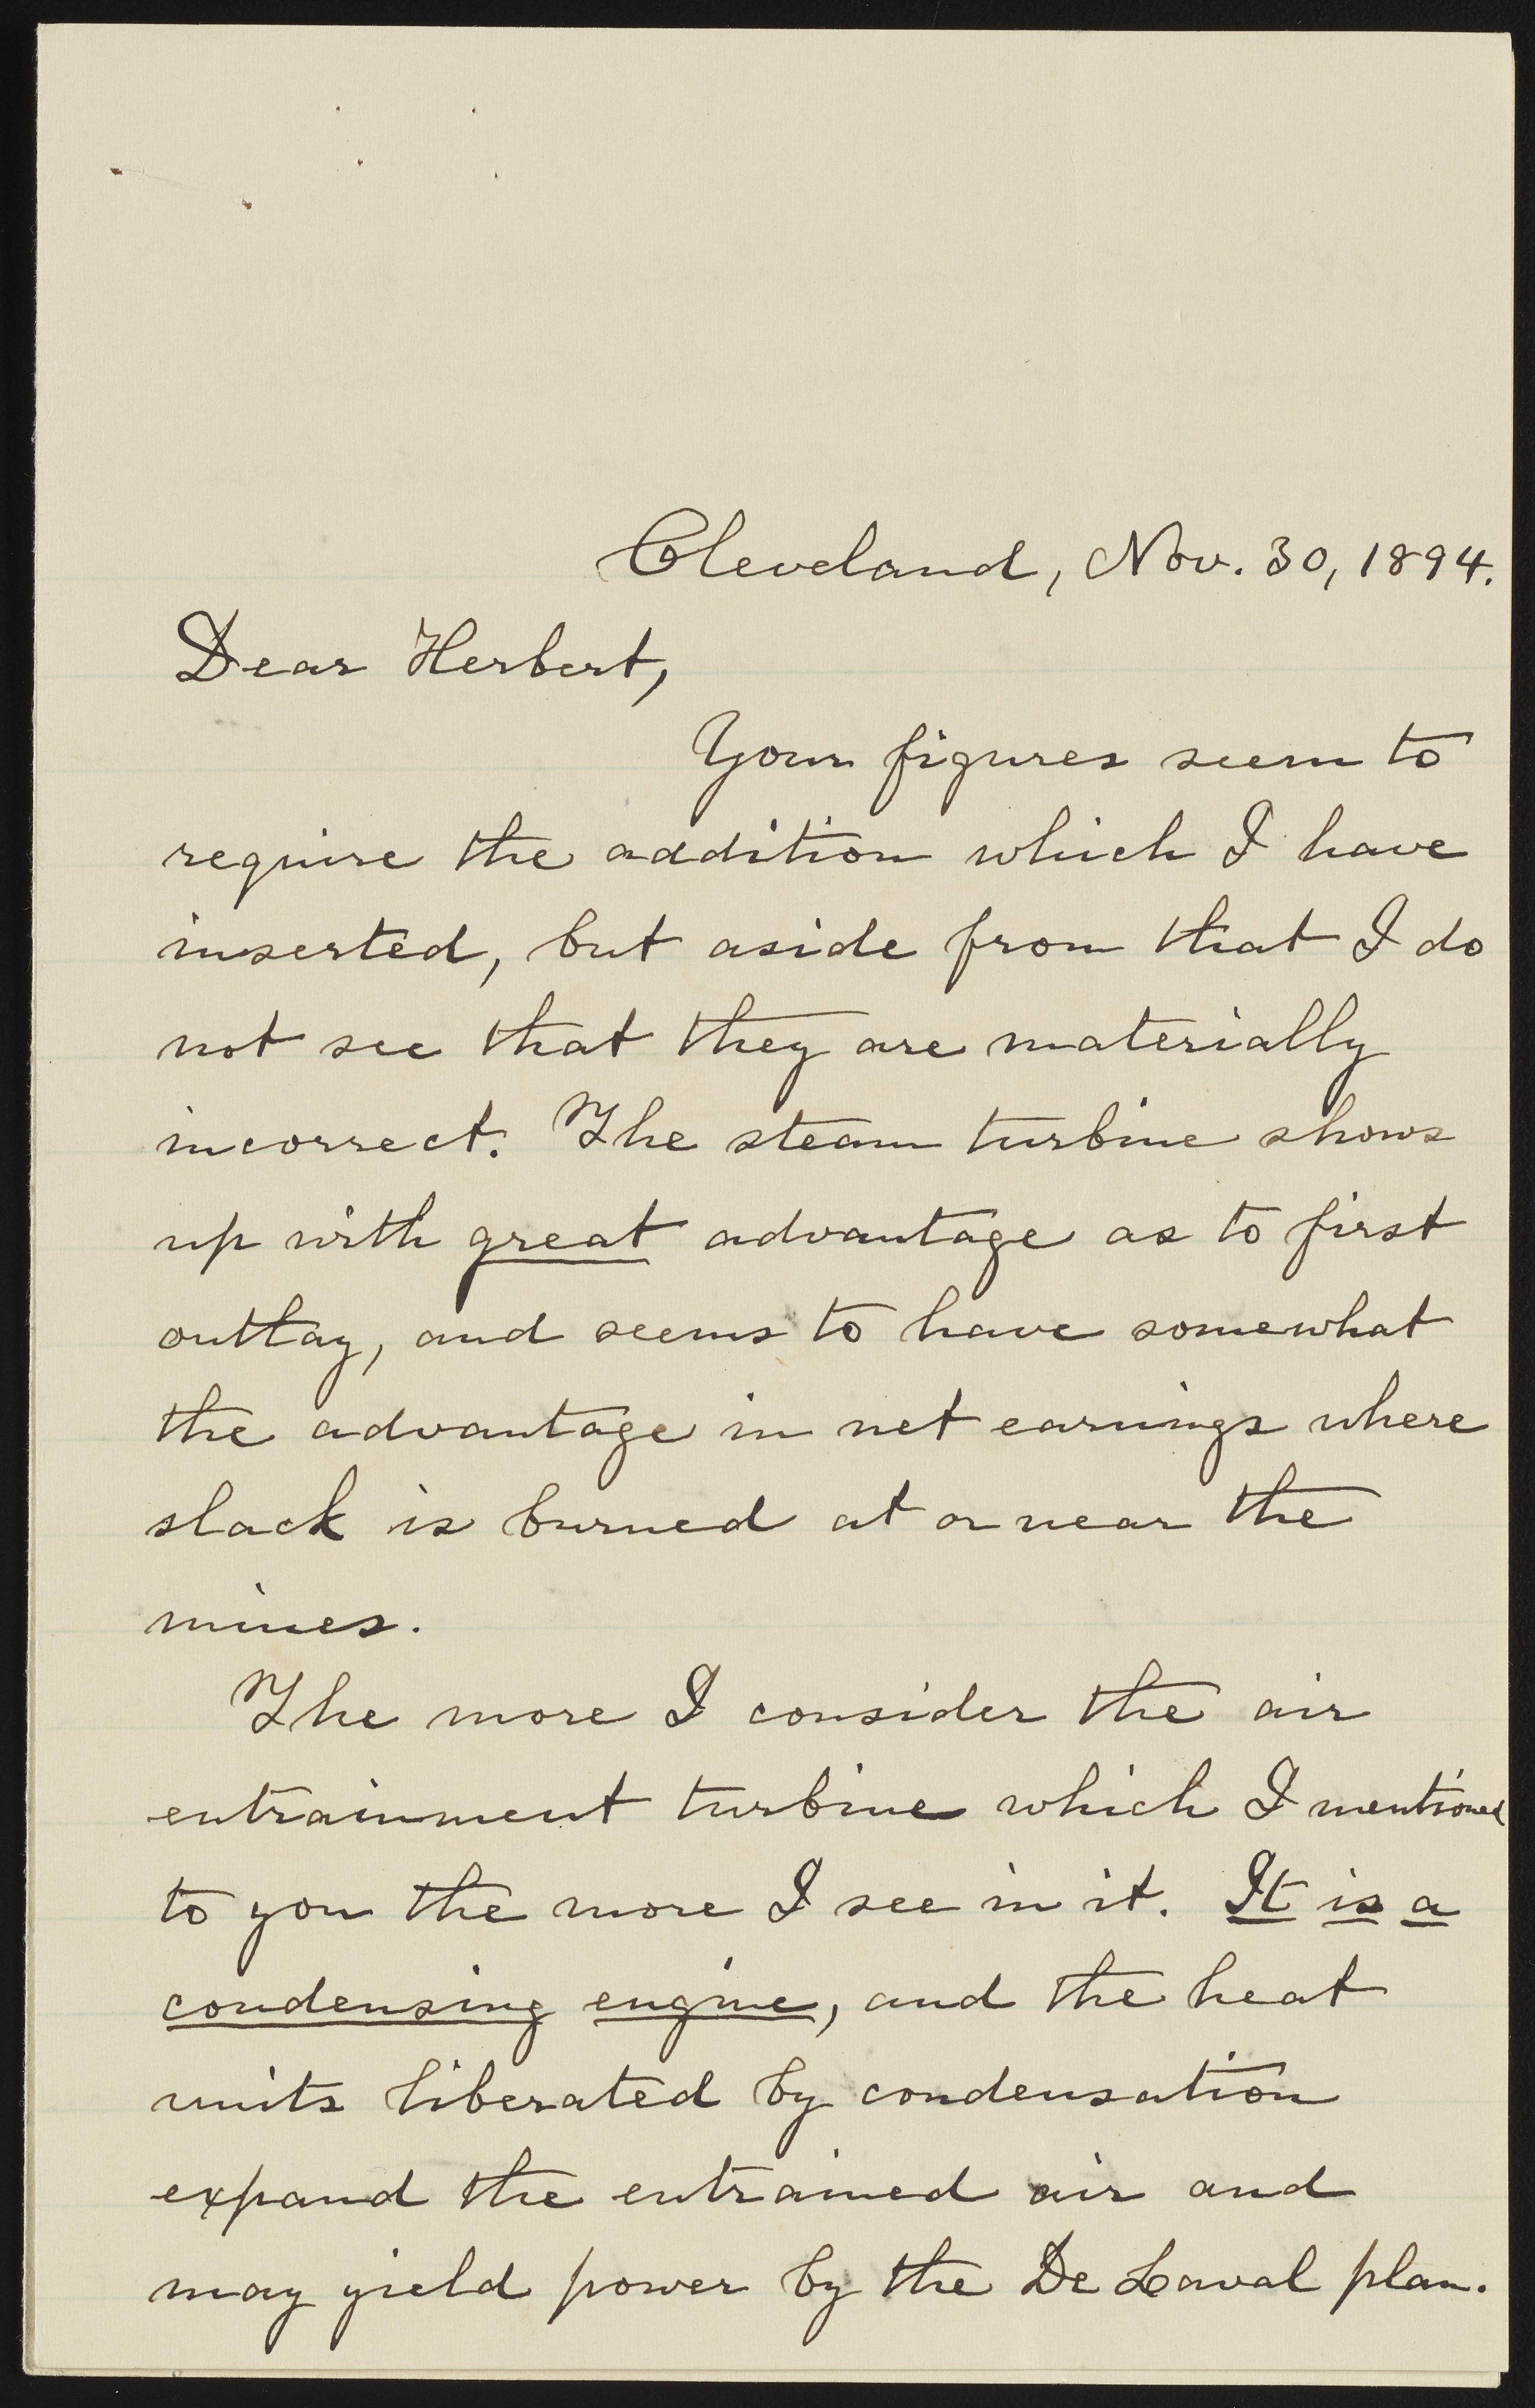 Cleveland, Nov. 30, 1894.
Dear Herbert,
Your figures seem to
require the addition which I have
inserted, but aside from that I do
not see that they are materially
incorrect. The steam turbine shows
up with great advantage as to first
outlay, and seems to have somewhat
the advantage in net earnings where
slack is burned at or near the
mines.
The more I consider the air
entrainment turbine which I mentioned
to you the more I see in it. It is a
condensing engine, and the heat
units liberated by condensation
expand the entrained air and
may yield power by the De Laval plan.